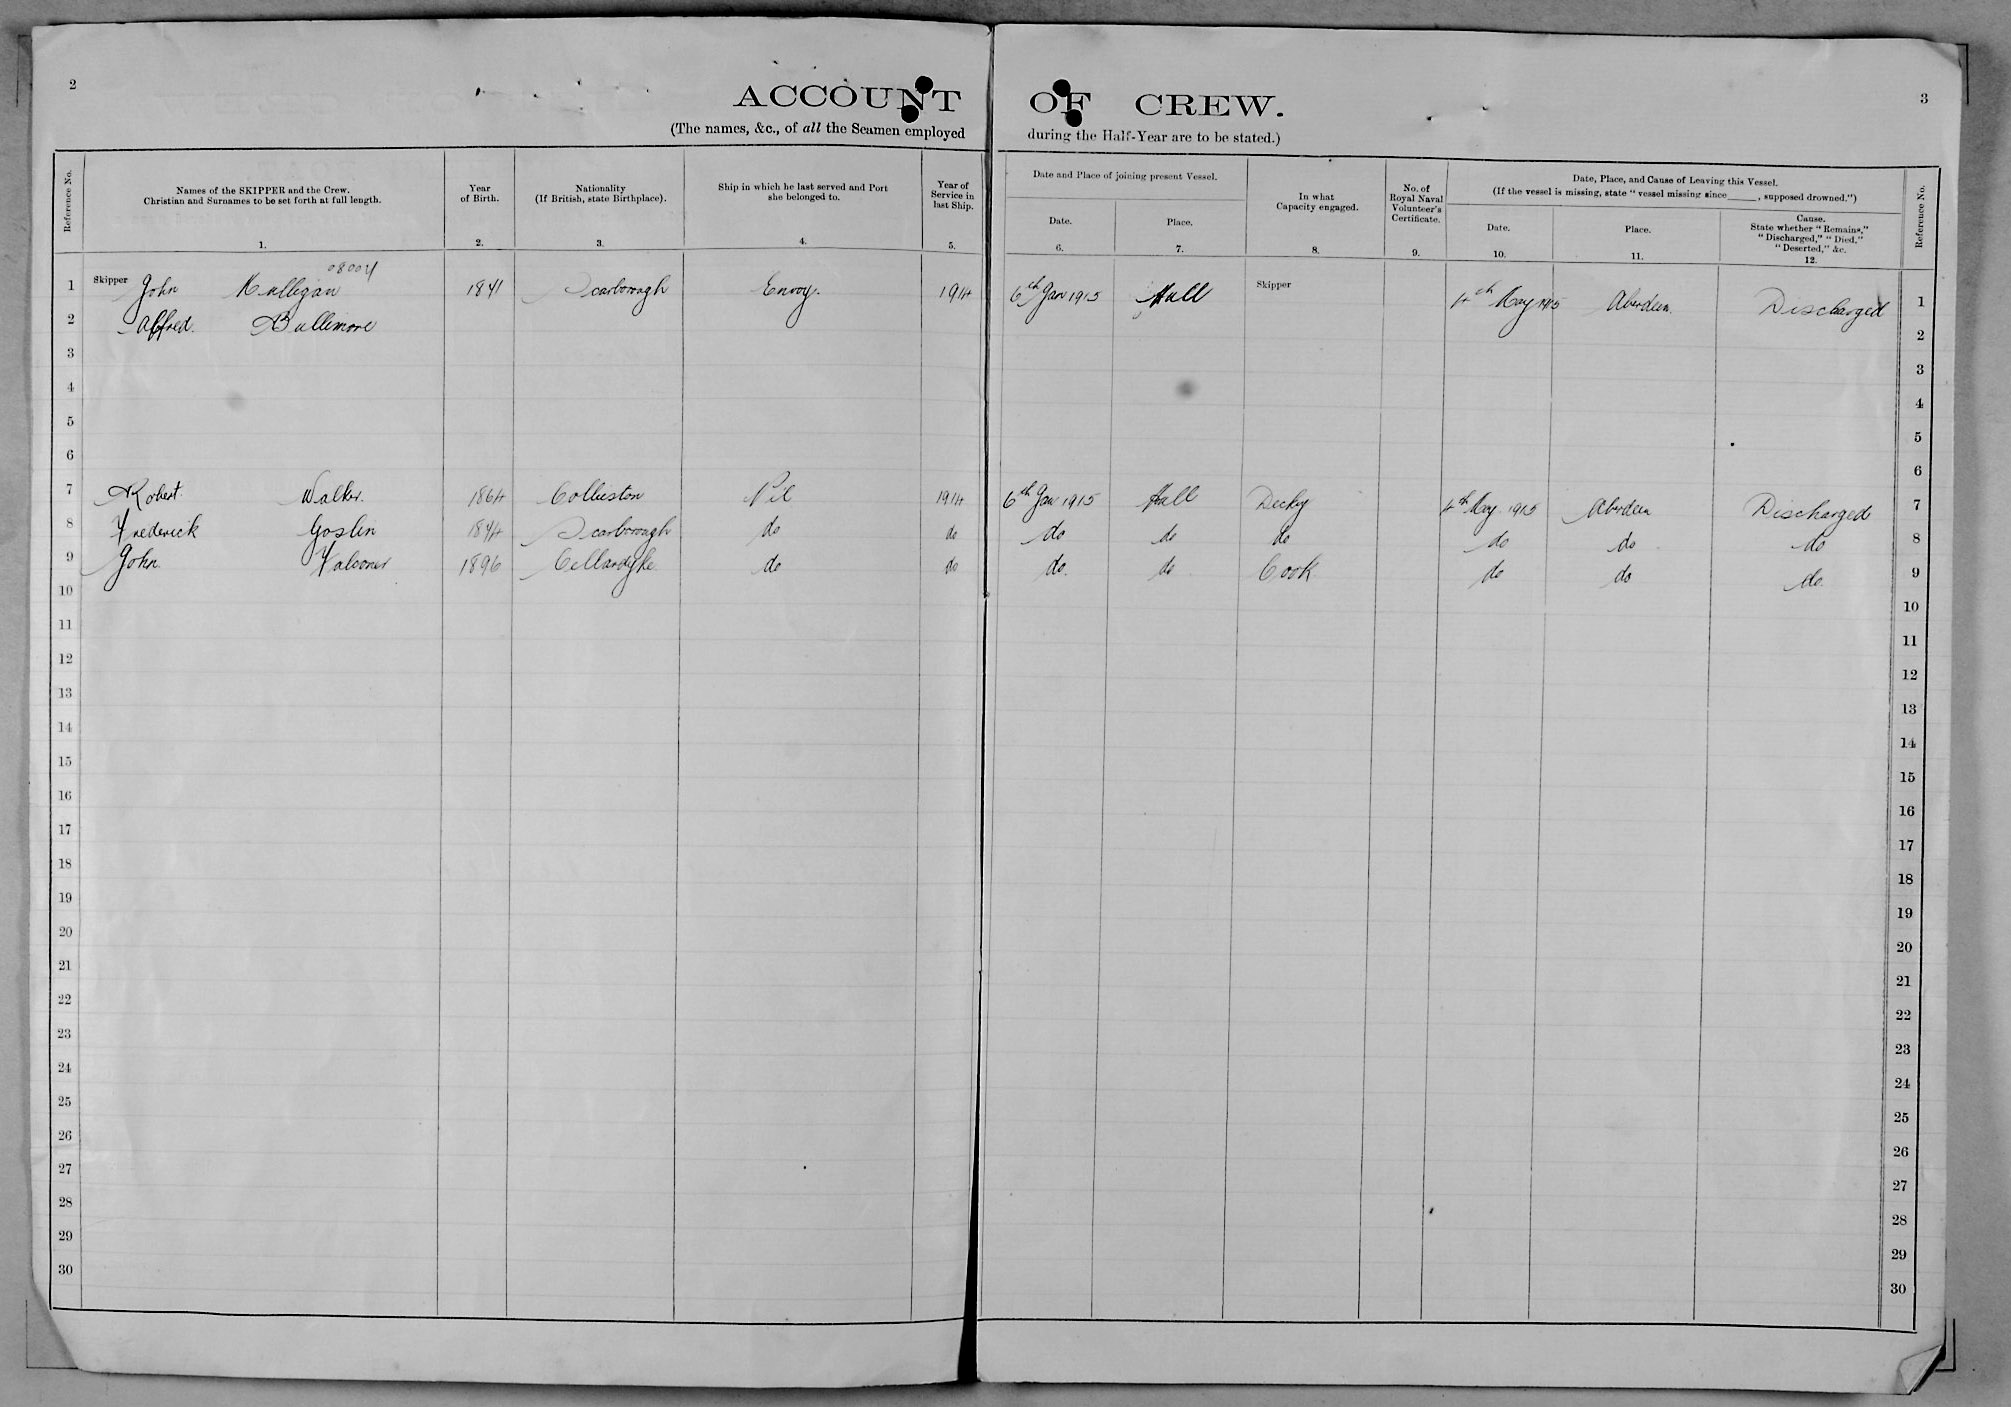 2
ACCOUNT OF CREW.
3
(The names, &c., of all the Seamen employed during the Half-Year are to be stated.)
Reference No.
Names of the SKIPPER and the Crew.
Christian and Surnames to be set forth at full length.
1.
Year of Birth.
2.
Nationality
(If British, state Birthplace).
3.
Ship in which he last served and Port she belonged to.
4.
Year of Service in last Ship.
5.
Date and Place of joining present Vessel.
Date.
6.
Place.
7.
In what Capacity engaged.
8.
No. of Royal Naval Volunteer's Certificate.
9.
Date, Place, and Cause of Leaving this Vessel.
(If the vessel is missing, state "vessel missing since ______, supposed drowned.")
Date.
10.
Place.
11.
Cause.
State whether "Remains," "Discharged," "Died," "Deserted," &c.
12.
Reference No.
1 Skipper John Mulligan 1841 Scarborough Envoy. 1914 6th Jan 1915 Hull Skipper 4th May 1915 Aberdeen. Discharged 1
2 Alfred. Bullemore 2
3 3
4 4
5 5
6 6
7 Robert. Walker. 1864 Collieston Nil 1914 6th Jan 1915 Hull Decky 4th May 1915 Aberdeen Discharged 7
8 Frederick Goslin 1844 Scarborough do do do do do do do do 8
9 John Falconer 1896 Cellardyke do do do. do Cook do do do. 9
10 10
11 11
12 12
13 13
14 14
15 15
16 16
17 17
18 18
19 19
20 20
21 21
22 22
23 23
24 24
25 25
26 26
27 27
28 28
29 29
30 30